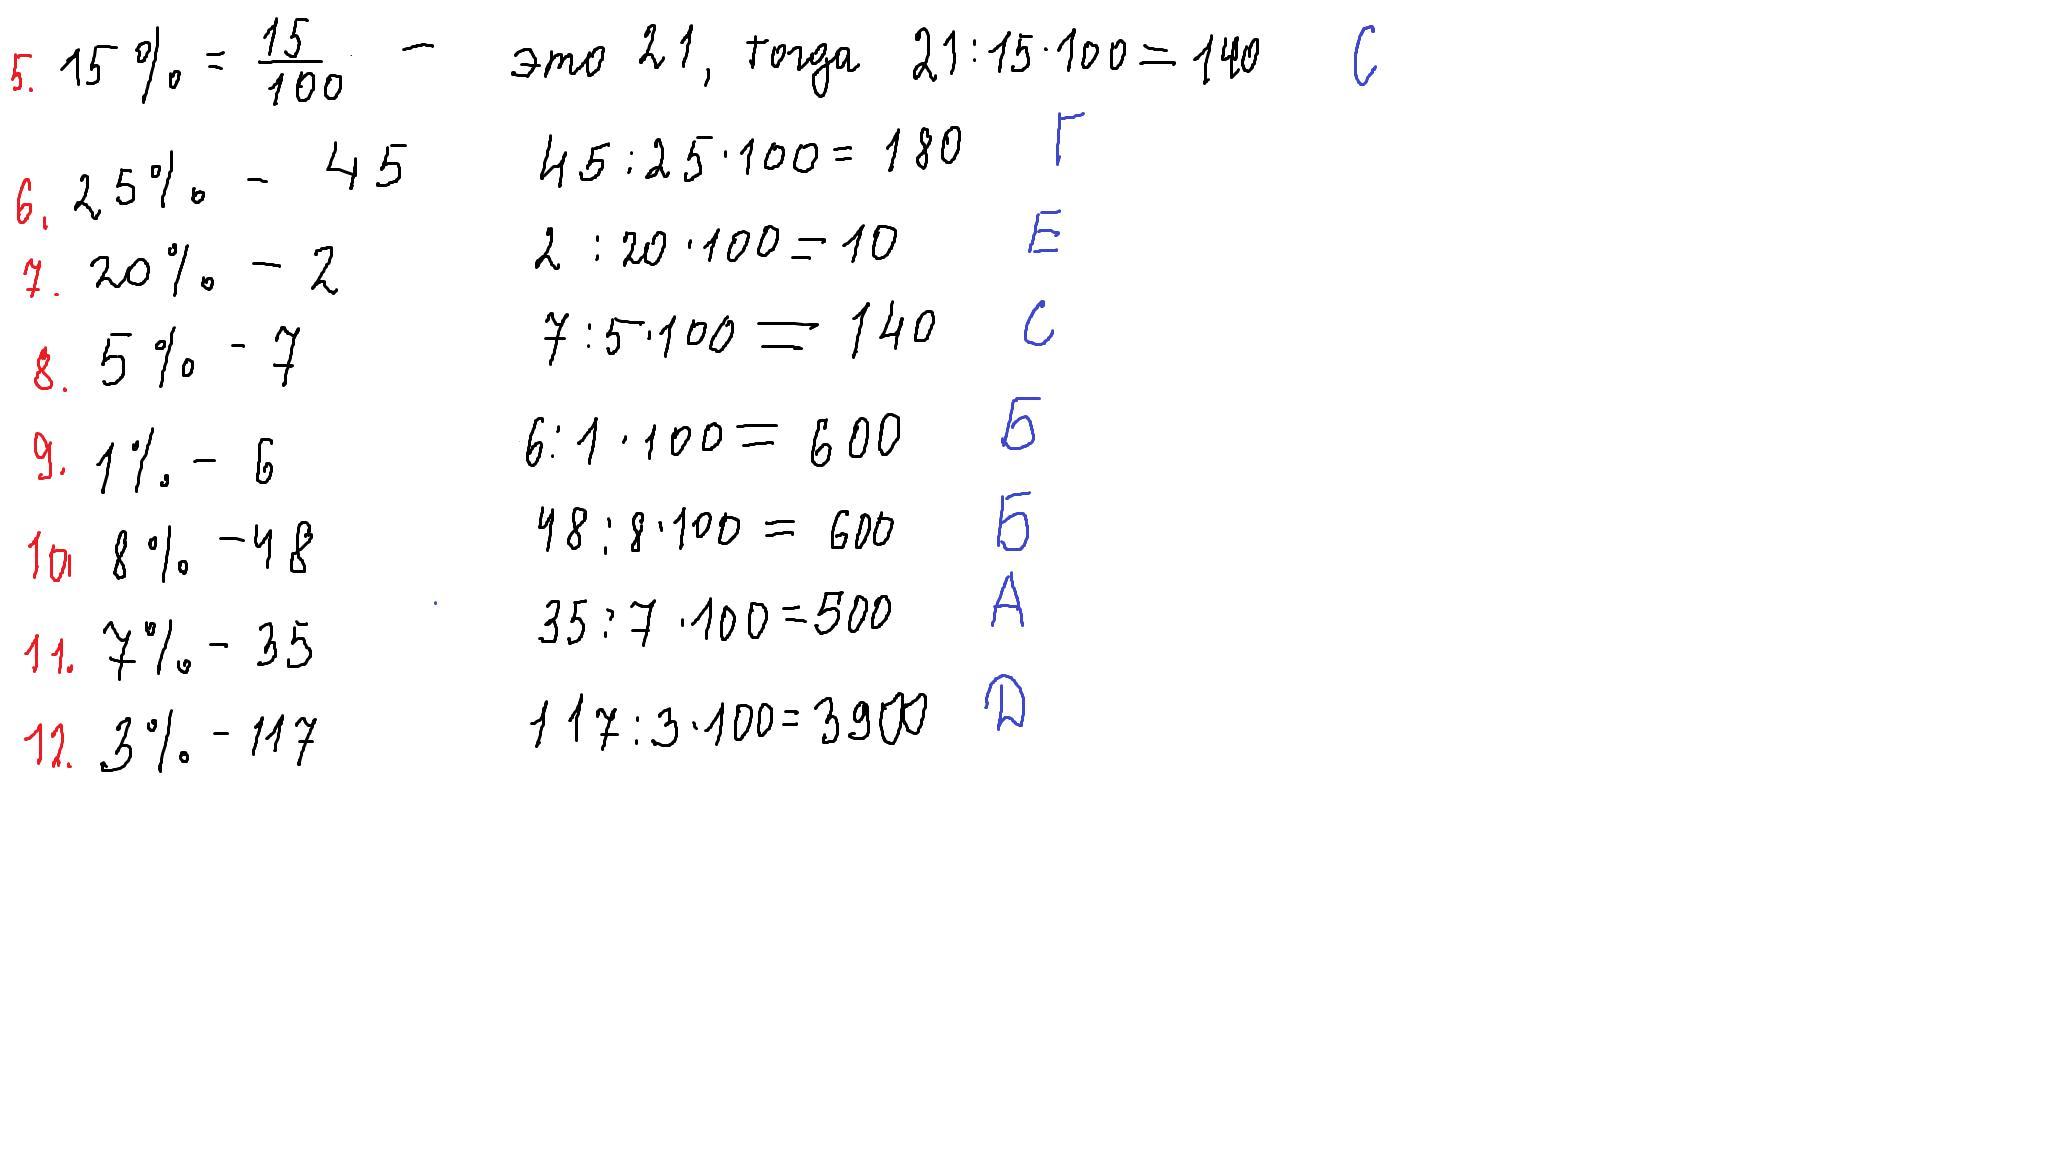 5. 15% = 15/100 - это 21, тогда 21:15·100=140 С
6. 25% - 45 45:25·100=180 Г
7. 20% - 2 2:20·100=10 Е
8. 5% - 7 7:5·100=140 С
9. 1% - 6 6:1·100=600 Б
10. 8% - 48 48:8·100=600 Б
11. 7% - 35 35:7·100=500 А
12. 3% - 117 117:3·100=3900 D